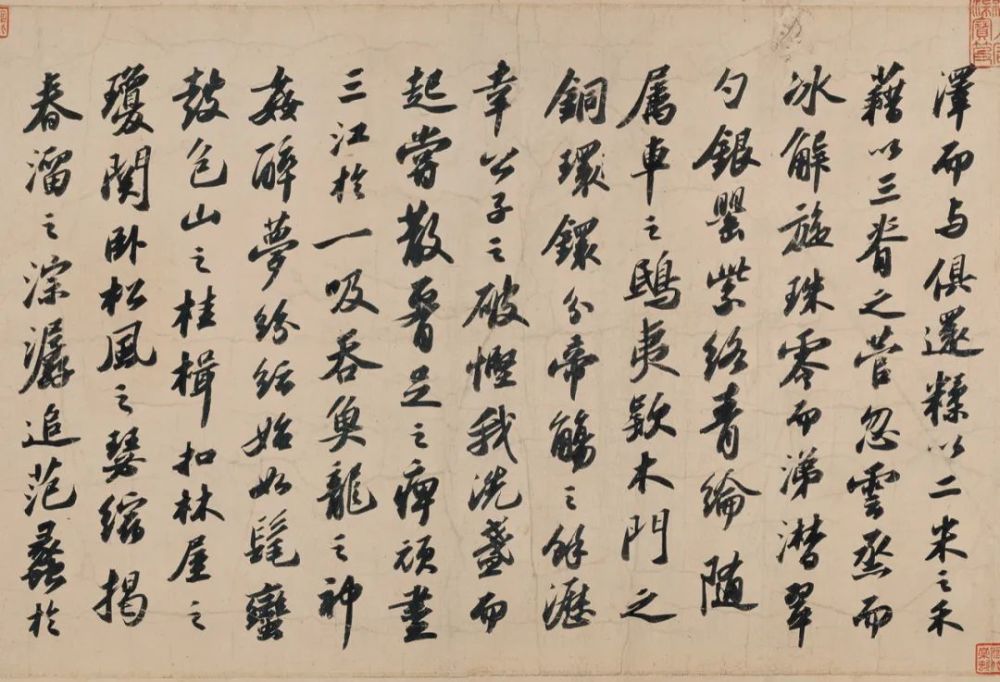 澤而与俱還糅以二米之禾
藉以三脊之菅忽雲烝而
冰解旋珠零而涕潸翠
勺銀罌紫絡青綸随
属車之鴟夷款木門之
銅環鐶分帝觴之餘瀝
幸公子之破慳我洗盞而
起嘗散腰足之痺頑盡
三江於一吸吞魚龍之神
姦醉夢紛紜始如髦蠻
鼓包山之桂楫扣林屋之
瓊関臥松風之瑟縮揭
春溜之淙潺追范蠡於